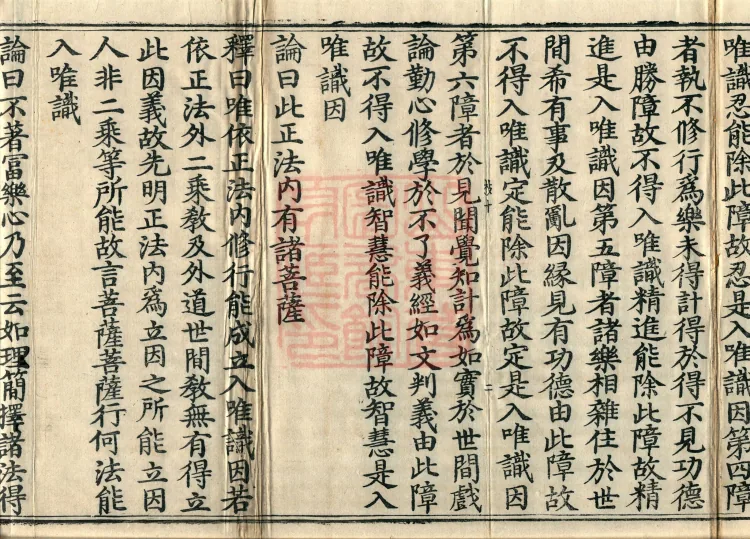 唯識忍能除此障故忍是入唯識因第四障
者執不修行爲樂未得計得於得不見功德
由勝障故不得入唯識精進能除此障故精
進是入唯識因第五障者諸樂相雜住於世
間希有事及散亂因緣見有功德由此障故
不得入唯識定能除此障故定是入唯識因
第六障者於見聞覺知計爲如實於世間戲
論勤心修學於不了義經如文判義由此障
故不得入唯識智慧能除此障故智慧是入
唯識因
論曰此正法內有諸菩薩
釋曰唯依正法內修行能成立入唯識因若
依正法外二乘教及外道世間教無有得立
此因義故先明正法內爲立因之所能立因
人非二乘等所能故言菩薩菩薩行何法能
入唯識
論曰不著富樂心乃至云如理簡擇諸法得